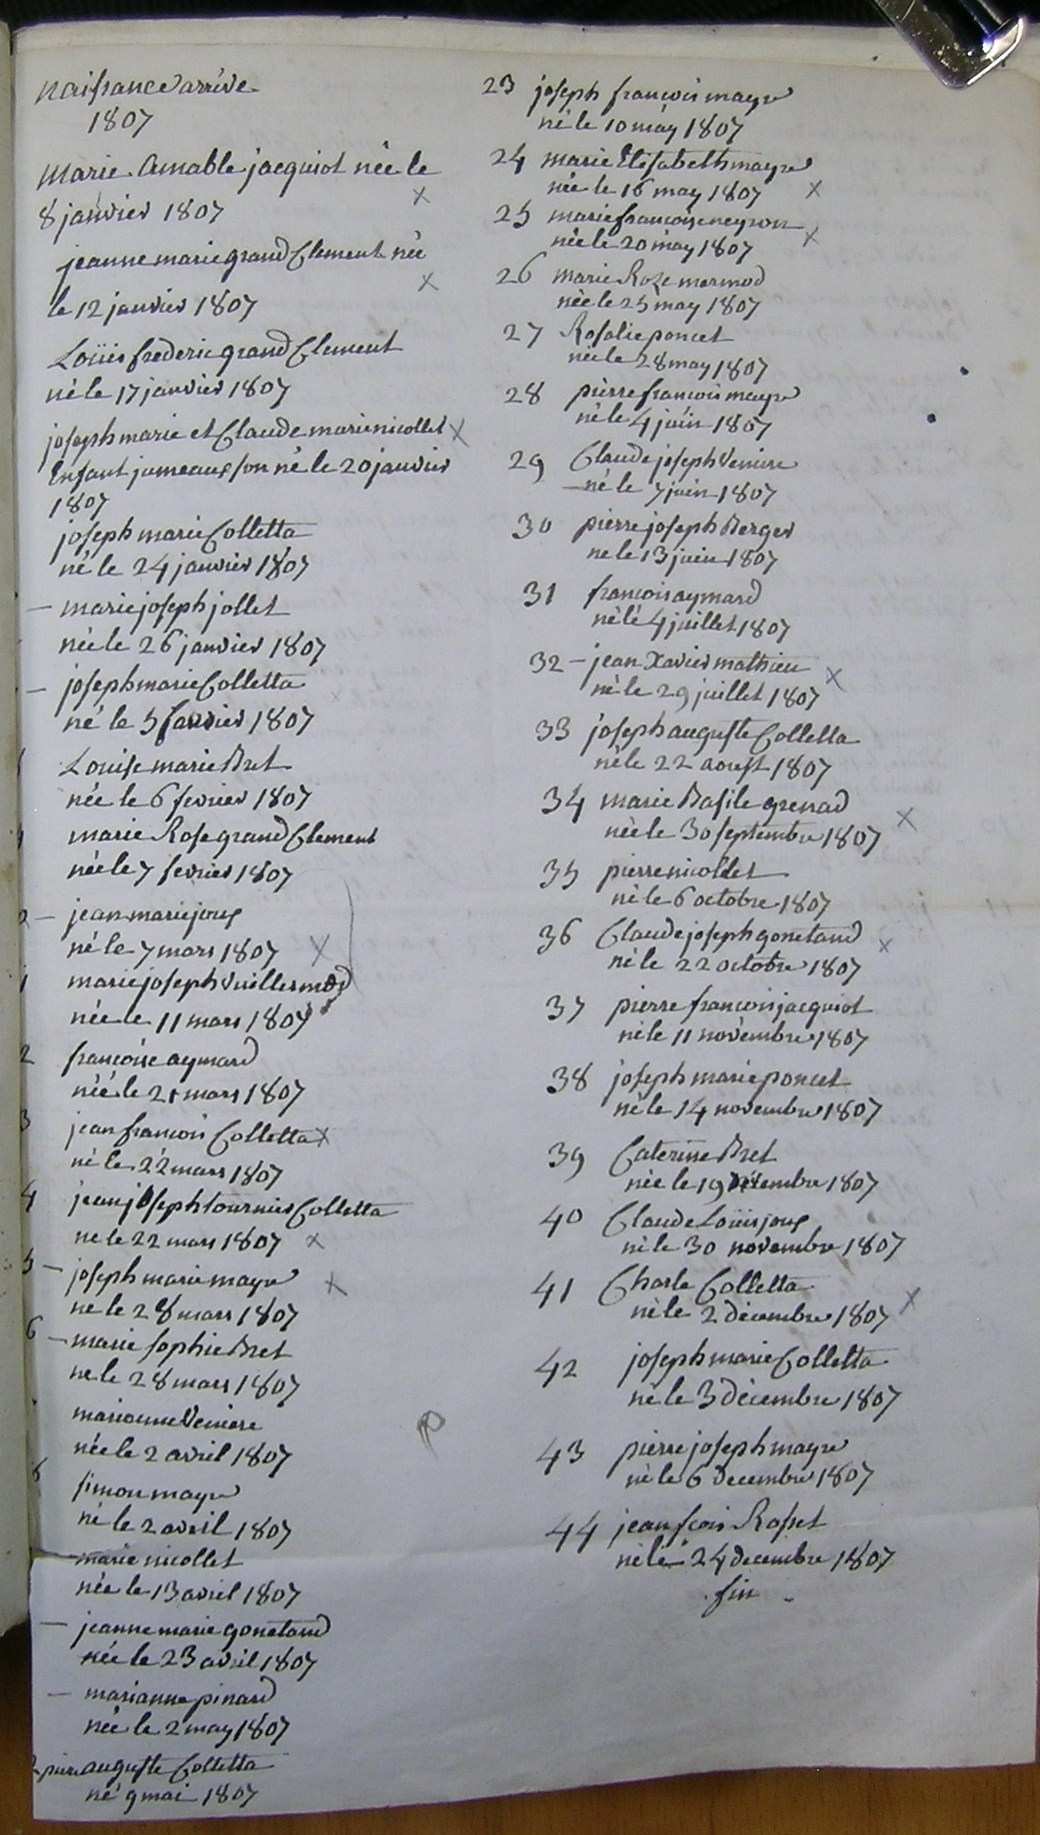 naissance arrivé
1807
marie amable jacquiot née le
8 janvier 1807
jeanne marie grand Clement née
le 12 janvier 1807
Loüis frederic grand Clement
né le 17 janvier 1807
joseph marie et Claude marie nicollet
Enfant jumeaux son né le 20 janvier
1807
joseph marie Colletta
né le 24 janvier 1807
marie joseph jollet
née le 26 janvier 1807
joseph marie Colletta
né le 5 favrier 1807
Louise marie Bret
née le 6 fevrier 1807
marie Rose grand Clement
née le 7 fevrier 1807
jean marie joux
né le 7 mars 1807
marie joseph Vuillermod
née le 11 mars 1807
2 francoise aymard
née le 21 mars 1807
3 jean francois Colletta
né le 22 mars 1807
4 jean joseph tournier Colletta
ne le 22 mars 1807
5 joseph marie mayre
ne le 28 mars 1807
6 marie sophie Bret
ne le 28 mars 1807
marianne Veniere
née le 2 avril 1807
8 simon mayre
né le 2 avril 1807
marie nicollet
née le 13 avril 1807
jeanne marie gonetand
née le 23 avril 1807
marianne pinard
née le 2 may 1807
pierre auguste Colletta
né 9 mai 1807
23 joseph francois mayre
né le 10 may 1807
24 marie Elisabeth mayre
née le 16 may 1807
25 marie francoise neyron
née le 20 may 1807
26 marie Roze mermod
née le 25 may 1807
27 Rosalie poncet
née le 28 may 1807
28 pierre francois mayre
né le 4 juin 1807
29 Claude joseph Veniere
né le 7 juin 1807
30 pierre joseph Berger
ne le 13 juin 1807
31 francois aymard
né le 4 juillet 1807
32 jean Xavier mathieu
né le 29 juillet 1807
33 joseph auguste Colletta
né le 22 aoust 1807
34 marie Basile grenard
née le 30 septembre 1807
35 pierre nicollet
né le 6 octobre 1807
36 Claude joseph gonetand
né le 22 octobre 1807
37 pierre francois jacquiot
né le 11 novembre 1807
38 joseph marie poncet
né le 14 novembre 1807
39 Caterine Bret
née le 19 1807
40 Claude Loüis joux
né le 30 novembre 1807
41 Charle Colletta
né le 2 décembre 1807
42 joseph marie Colletta
né le 3 décembre 1807
43 pierre joseph mayre
né le 6 decembre 1807
44 jean fcois Rosset
né le 24 decembre 1807
fin